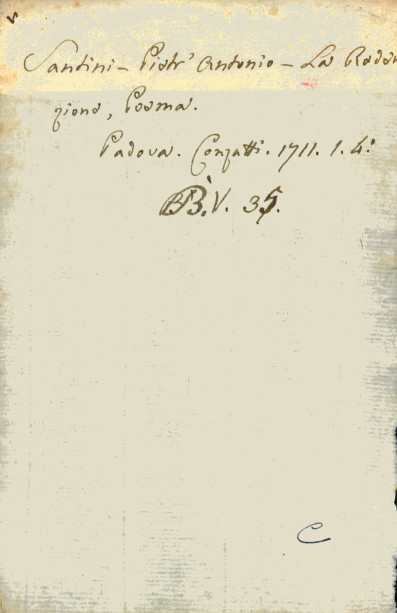 v
Santini - Pietr' Antonio - La Reden
zione, Poema.
Padova. Conzatti. 1711. 1. 4:
BB. V. 35.
C